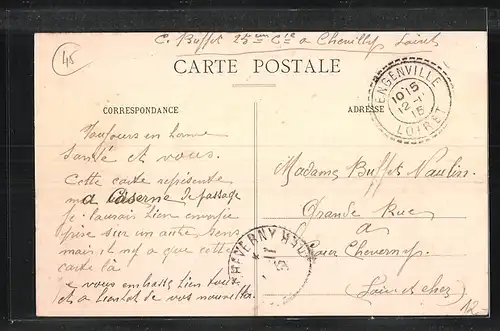 C. Buffet 25eme Cie a Chevilly Loiret
45
CARTE POSTALE
CORRESPONDANCE
ADRESSE
ENGENVILLE
10 15
12-1
15
LOIRET
Toujours en bonne
santé et vous.
Cette carte représente
ma Caserne de passage
je l'aurais bien envoyée
prise sur un autre sens
mais il n'y a que cette
carte là
e vous embrasse bien tous
et a bientot de vos nouvelles
Madame Buffet Naulin
Grande Rue
a
Cour Cheverny
Loir et cher
CHEVERNY
12.-